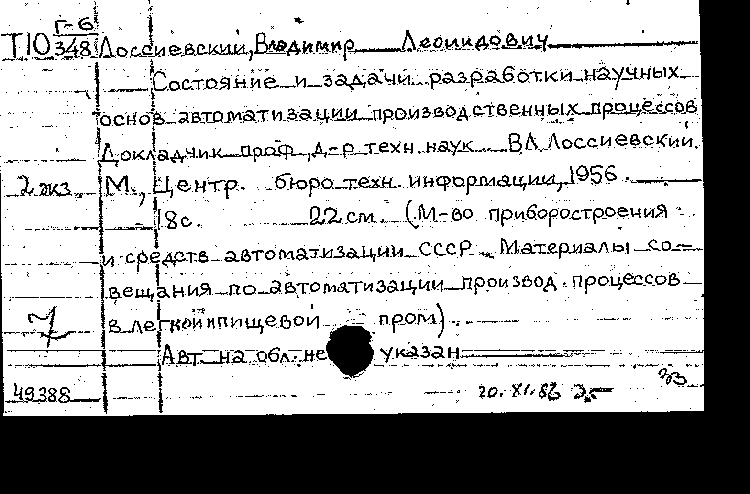 Г-6
Т10 348 Лоссиевский, Владимир Леонидович
Состояние и задачи разработки научных
основ автоматизации производственных процессов
Докладчик проф, д-р техн. наук В.Л. Лоссиевский.
2 экз. М., Центр. бюро техн. информации, 1956.
18с. 22 см. (М-во приборостроения
и средств автоматизации СССР. Материалы со-
вещания по автоматизации производ. процессов
7 в легкой и пищевой пром).
Авт. на обл. не указан
49388 20.XI.86